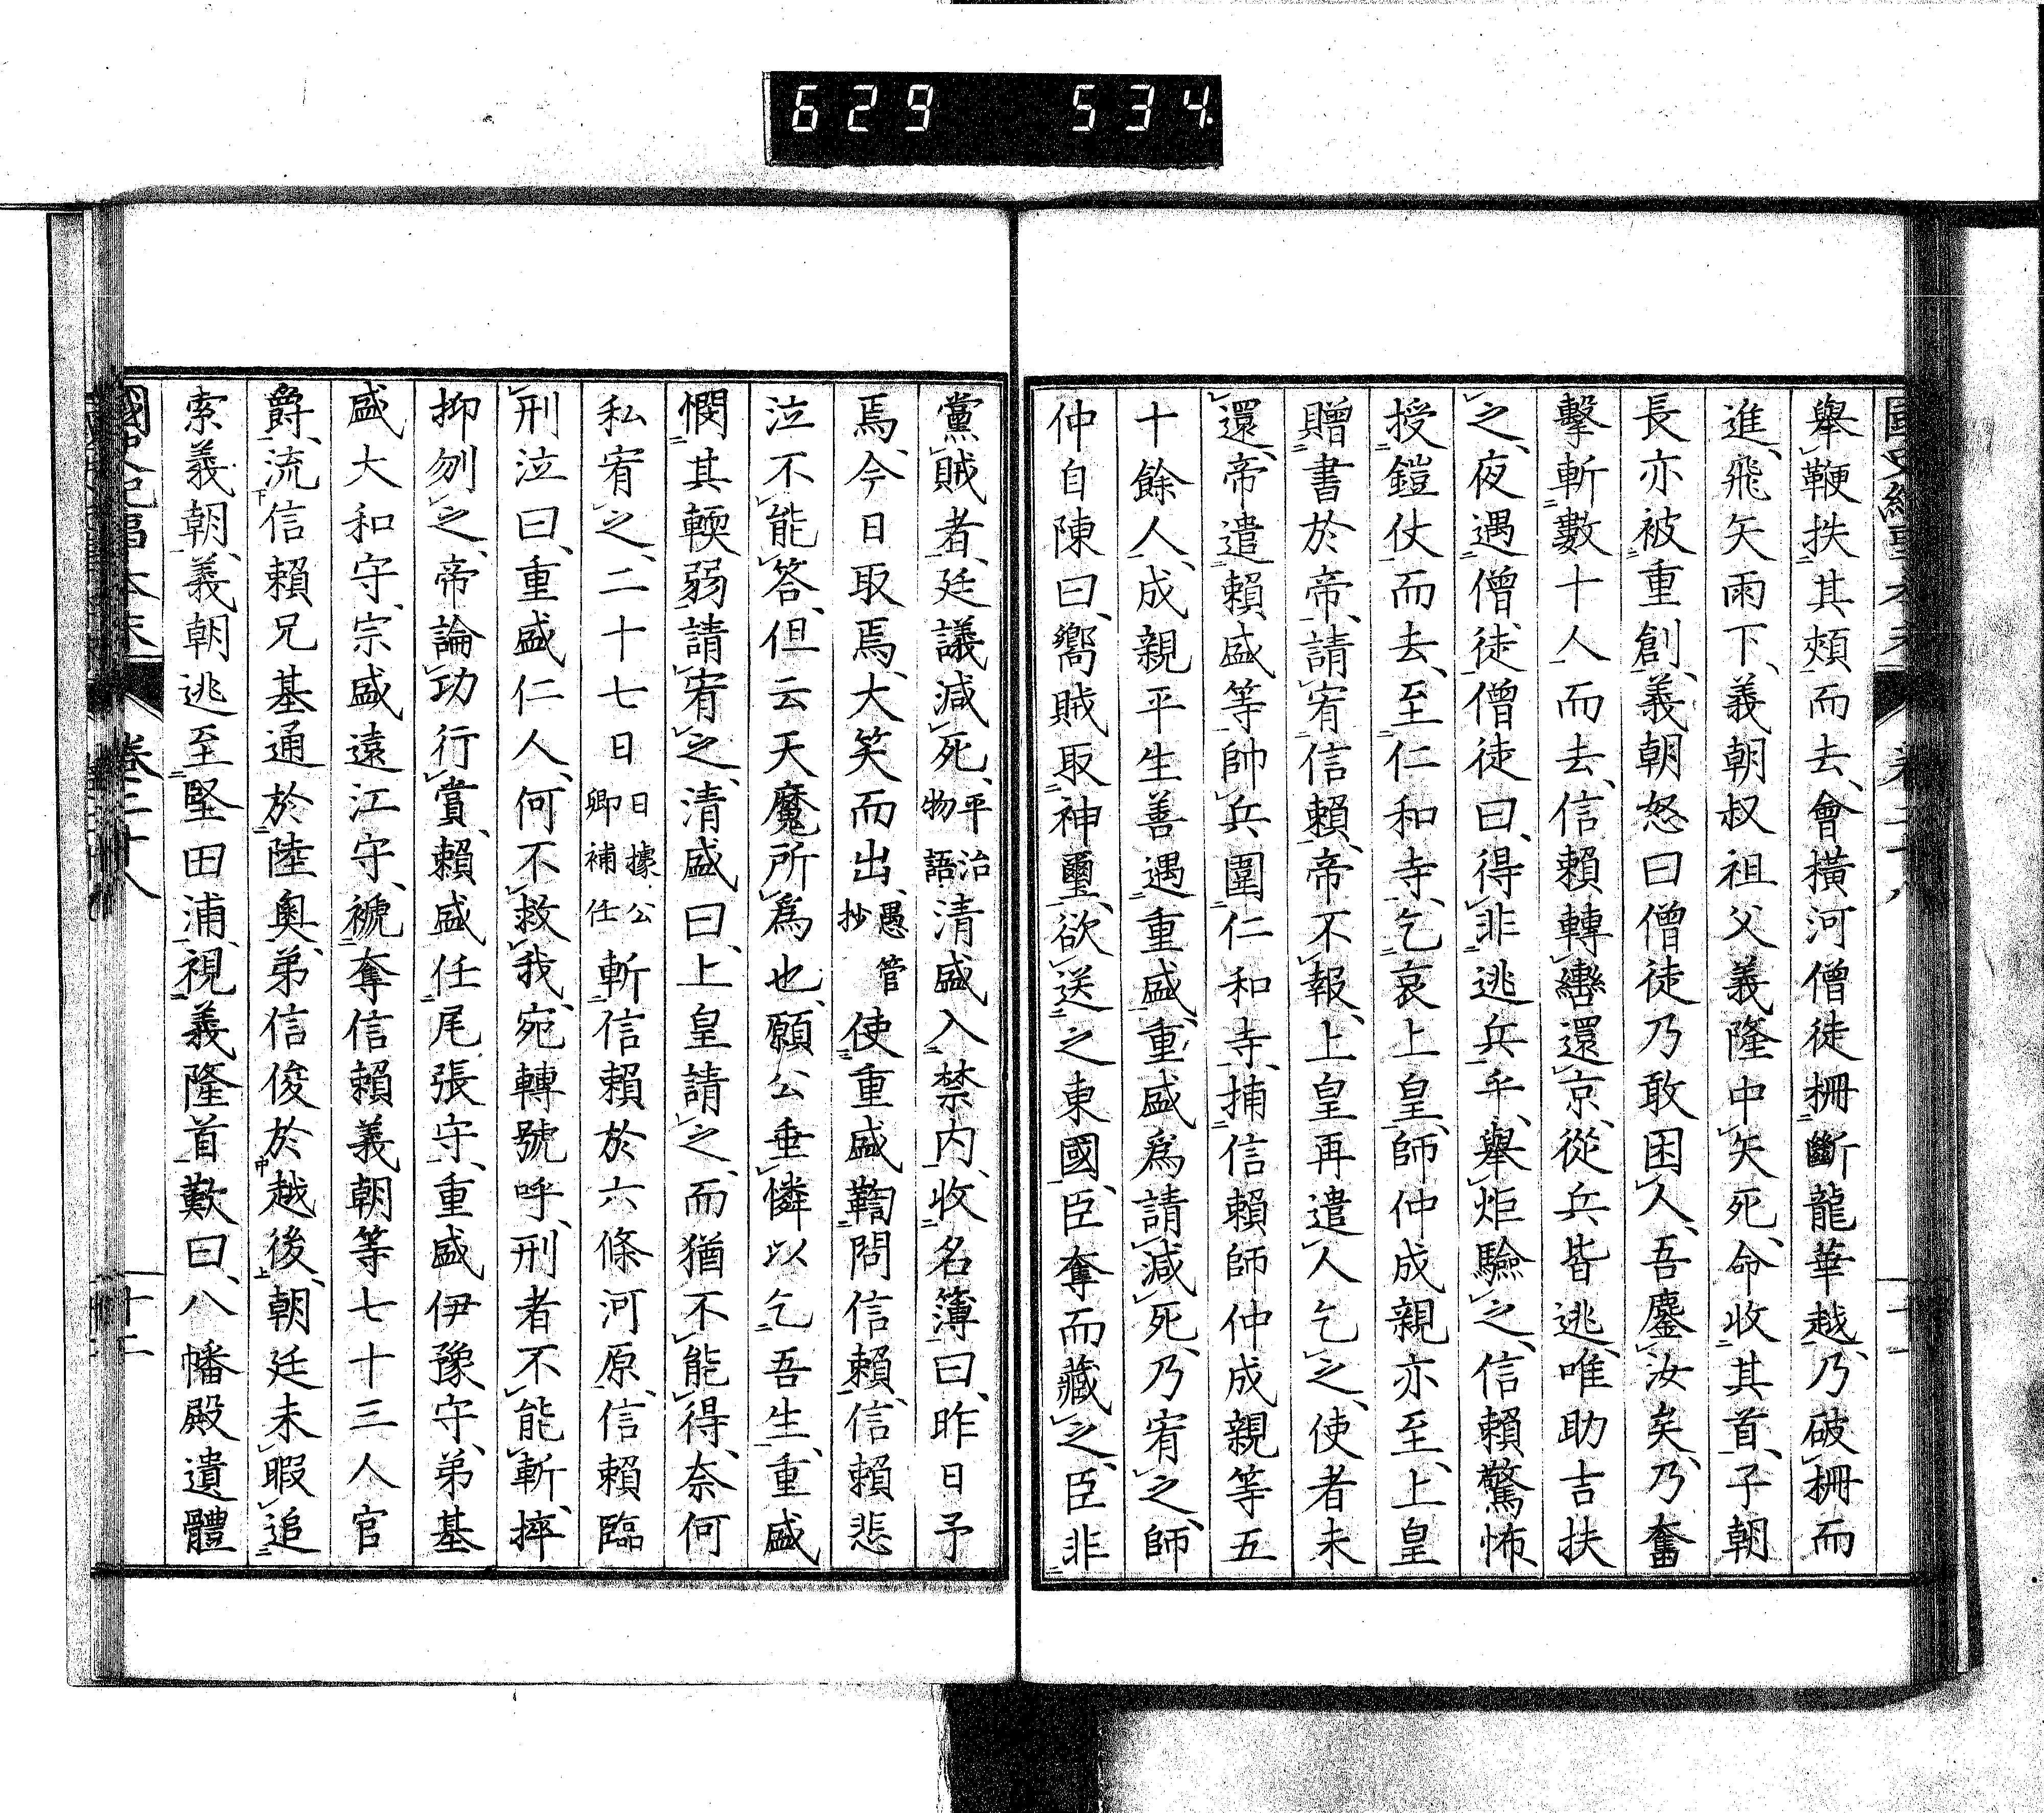 629 534
舉鞭抶其頰而去、會橫河僧徒柵斷龍華越、乃破柵而
進、飛矢雨下、義朝叔祖父義隆中矢死、命收其首、子朝
長亦被重創、義朝怒曰僧徒乃敢困人、吾鏖汝矣、乃奮
擊斬數十人而去、信賴轉轡還京、從兵皆逃、唯助吉扶
之、夜遇僧徒、僧徒曰、得非逃兵乎、舉炬驗之、信賴驚怖
授鎧仗而去、至仁和寺、乞哀上皇、師仲成親亦至、上皇
贈書於帝、請宥信賴、帝不報、上皇再遣人乞之、使者未
還、帝遣賴盛等帥兵圍仁和寺、捕信賴師仲成親等五
十餘人、成親平生善遇重盛、重盛爲請減死、乃宥之、師
仲自陳曰、嚮賊取神璽、欲送之東國、臣奪而藏之、臣非
黨賊者、廷議減死、平治物語清盛入禁内、收名簿曰、昨日予
焉、今日取焉、大笑而出、愚管抄使重盛鞫問信賴、信賴悲
泣不能答、但云天魔所爲也、願公垂憐以乞吾生、重盛
憫其輭弱、請宥之、清盛曰、上皇請之、而猶不能得、奈何
私宥之、二十七日日據公卿補任斬信賴於六條河原、信賴臨
刑泣曰、重盛仁人、何不救我、宛轉號呼、刑者不能斬、捽
抑刎之、帝論功行賞、賴盛任尾張守、重盛伊豫守、弟基
盛大和守、宗盛遠江守、褫奪信賴義朝等七十三人官
爵、流信賴兄基通於陸奧、弟信俊於越後、朝廷未暇追
索義朝、義朝逃至堅田浦、視義隆首歎曰、八幡殿遺體
國史紀事本末 卷二十八 十二